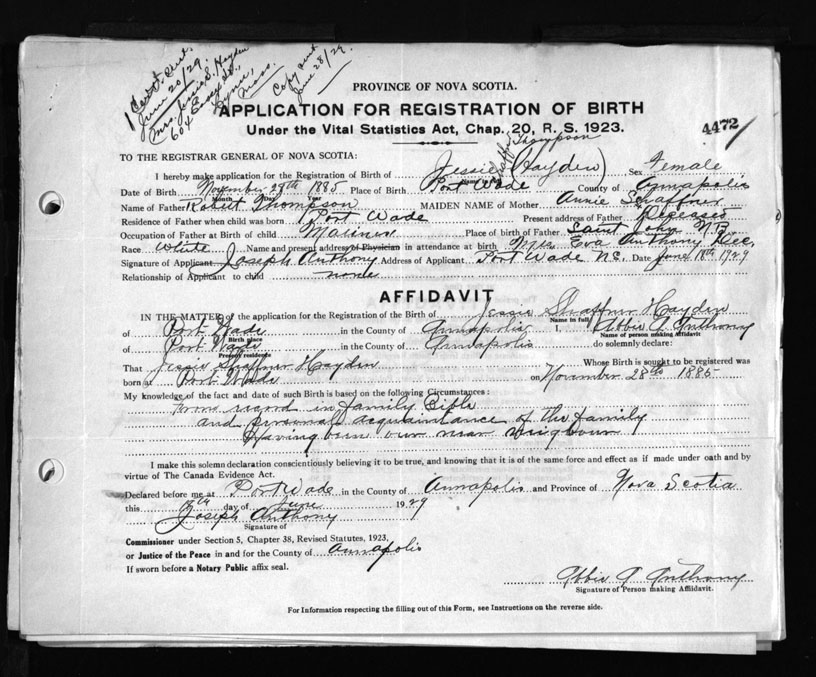 1 Cert. Sent
June 20/29.
Mrs. Jessie S. Hayden
604 Essex St.,
Lynn,
Mass.
Copy sent
June 28/29.
PROVINCE OF NOVA SCOTIA.
APPLICATION FOR REGISTRATION OF BIRTH
Under the Vital Statistics Act, Chap. 20, R. S. 1923.
4472
TO THE REGISTRAR GENERAL OF NOVA SCOTIA:
Thompson
I hereby make application for the Registration of Birth of Jessie (Hayden) Sex Female
Date of Birth November 28th 1885 Place of Birth Port Wade County of Annapolis
Month Day Year
Name of Father Robert Thompson MAIDEN NAME of Mother Annie Schaffner
Residence of Father when child was born Port Wade Present address of Father
Occupation of Father at Birth of child Place of birth of Father Saint John NB
Race White Name and present address of Physician in attendance at birth Mrs Eva Anthony Dec,
Signature of Applicant Joseph Anthony Address of Applicant Port Wade NS, Date June 18th 1929
Relationship of Applicant to child none
AFFIDAVIT
IN THE MATTER of the application for the Registration of Birth of Jessie Shaffner Hayden
Name in full
of Port Wade in the County of Annapolis I, Abbie Anthony
Birth place Name of person making Affidavit
of Port Wade in the County of Annapolis do solemnly declare:
Present residence
That Jessie Shaffner Hayden Whose Birth is sought to be registered was
born at Port Wade on November 28th 1885
My knowledge of the fact and date of such Birth is based on the following Circumstances:
from record in family Bible
and personal acquaintance of the family
Having been our near neighbour
I make this solemn declaration conscientiously believing it to be true, and knowing that it is of the same force and effect as if made under oath and by
virtue of The Canada Evidence Act.
Declared before me at Port Wade in the County of Annapolis and Province of Nova Scotia
this day of June 1929
Joseph Anthony
Signature of
Commissioner under Section 5, Chapter 38, Revised Statutes, 1923,
or Justice of the Peace in and for the County of Annapolis
If sworn before a Notary Public affix seal.
Abbie Anthony
Signature of Person making Affidavit.
For Information respecting the filling out of this Form, see Instructions on the reverse side.